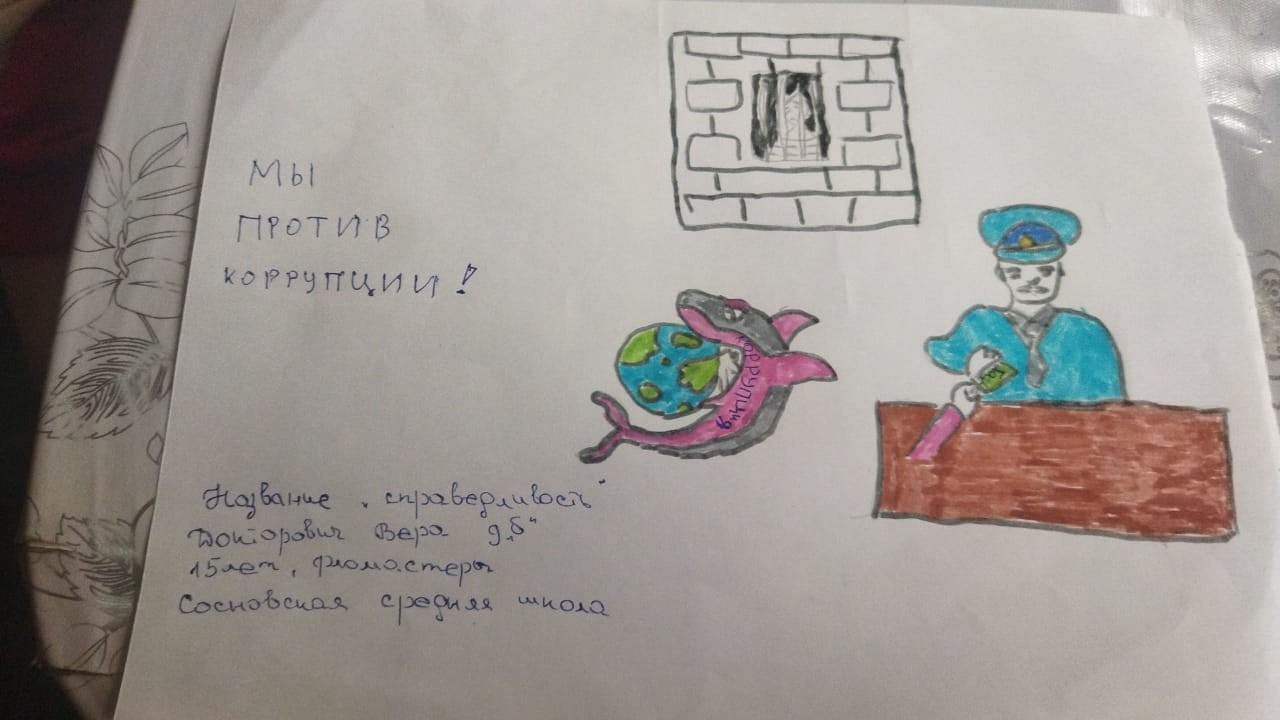 МЫ
ПРОТИВ
КОРРУПЦИИ!
коррупция
Название „справедливость"
Докторович Вера 9„б"
15 лет, фломастеры
Сосновская средняя школа